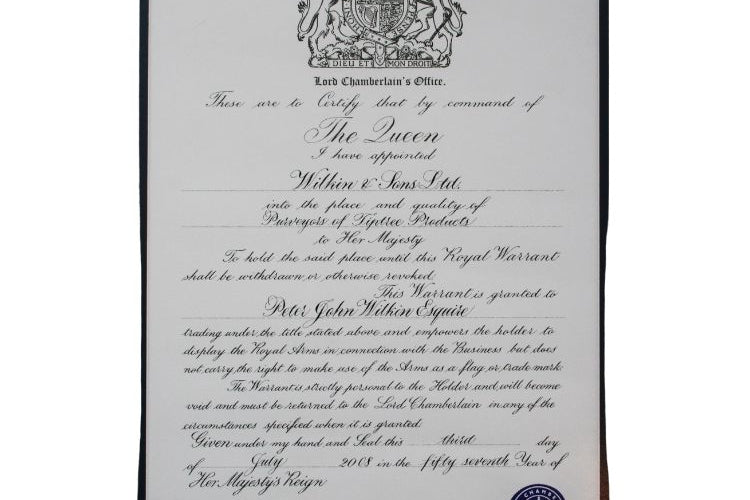 DIEU ET MON DROIT
Lord Chamberlain's Office.
These are to Certify that by command of
The Queen
I have appointed
Wilkin & Sons Ltd.
into the place and quality of
Purveyors of Tiptree Products
to Her Majesty
To hold the said place until this Royal Warrant
shall be withdrawn or otherwise revoked.
This Warrant is granted to
Peter John Wilkin Esquire
trading under the title stated above and empowers the holder to
display the Royal Arms in connection with the Business but does
not carry the right to make use of the Arms as a flag or trade mark.
The Warrant is strictly personal to the Holder and will become
void and must be returned to the Lord Chamberlain in any of the
circumstances specified when it is granted
Given under my hand and Seal this third day
of July 2008 in the fifty seventh Year of
Her Majesty's Reign